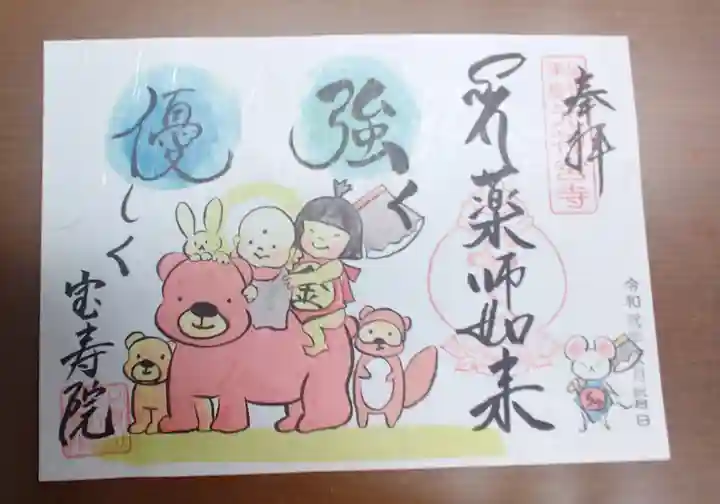 奉拝
薬師如来
強く
優しく
宝寿院
金
令和